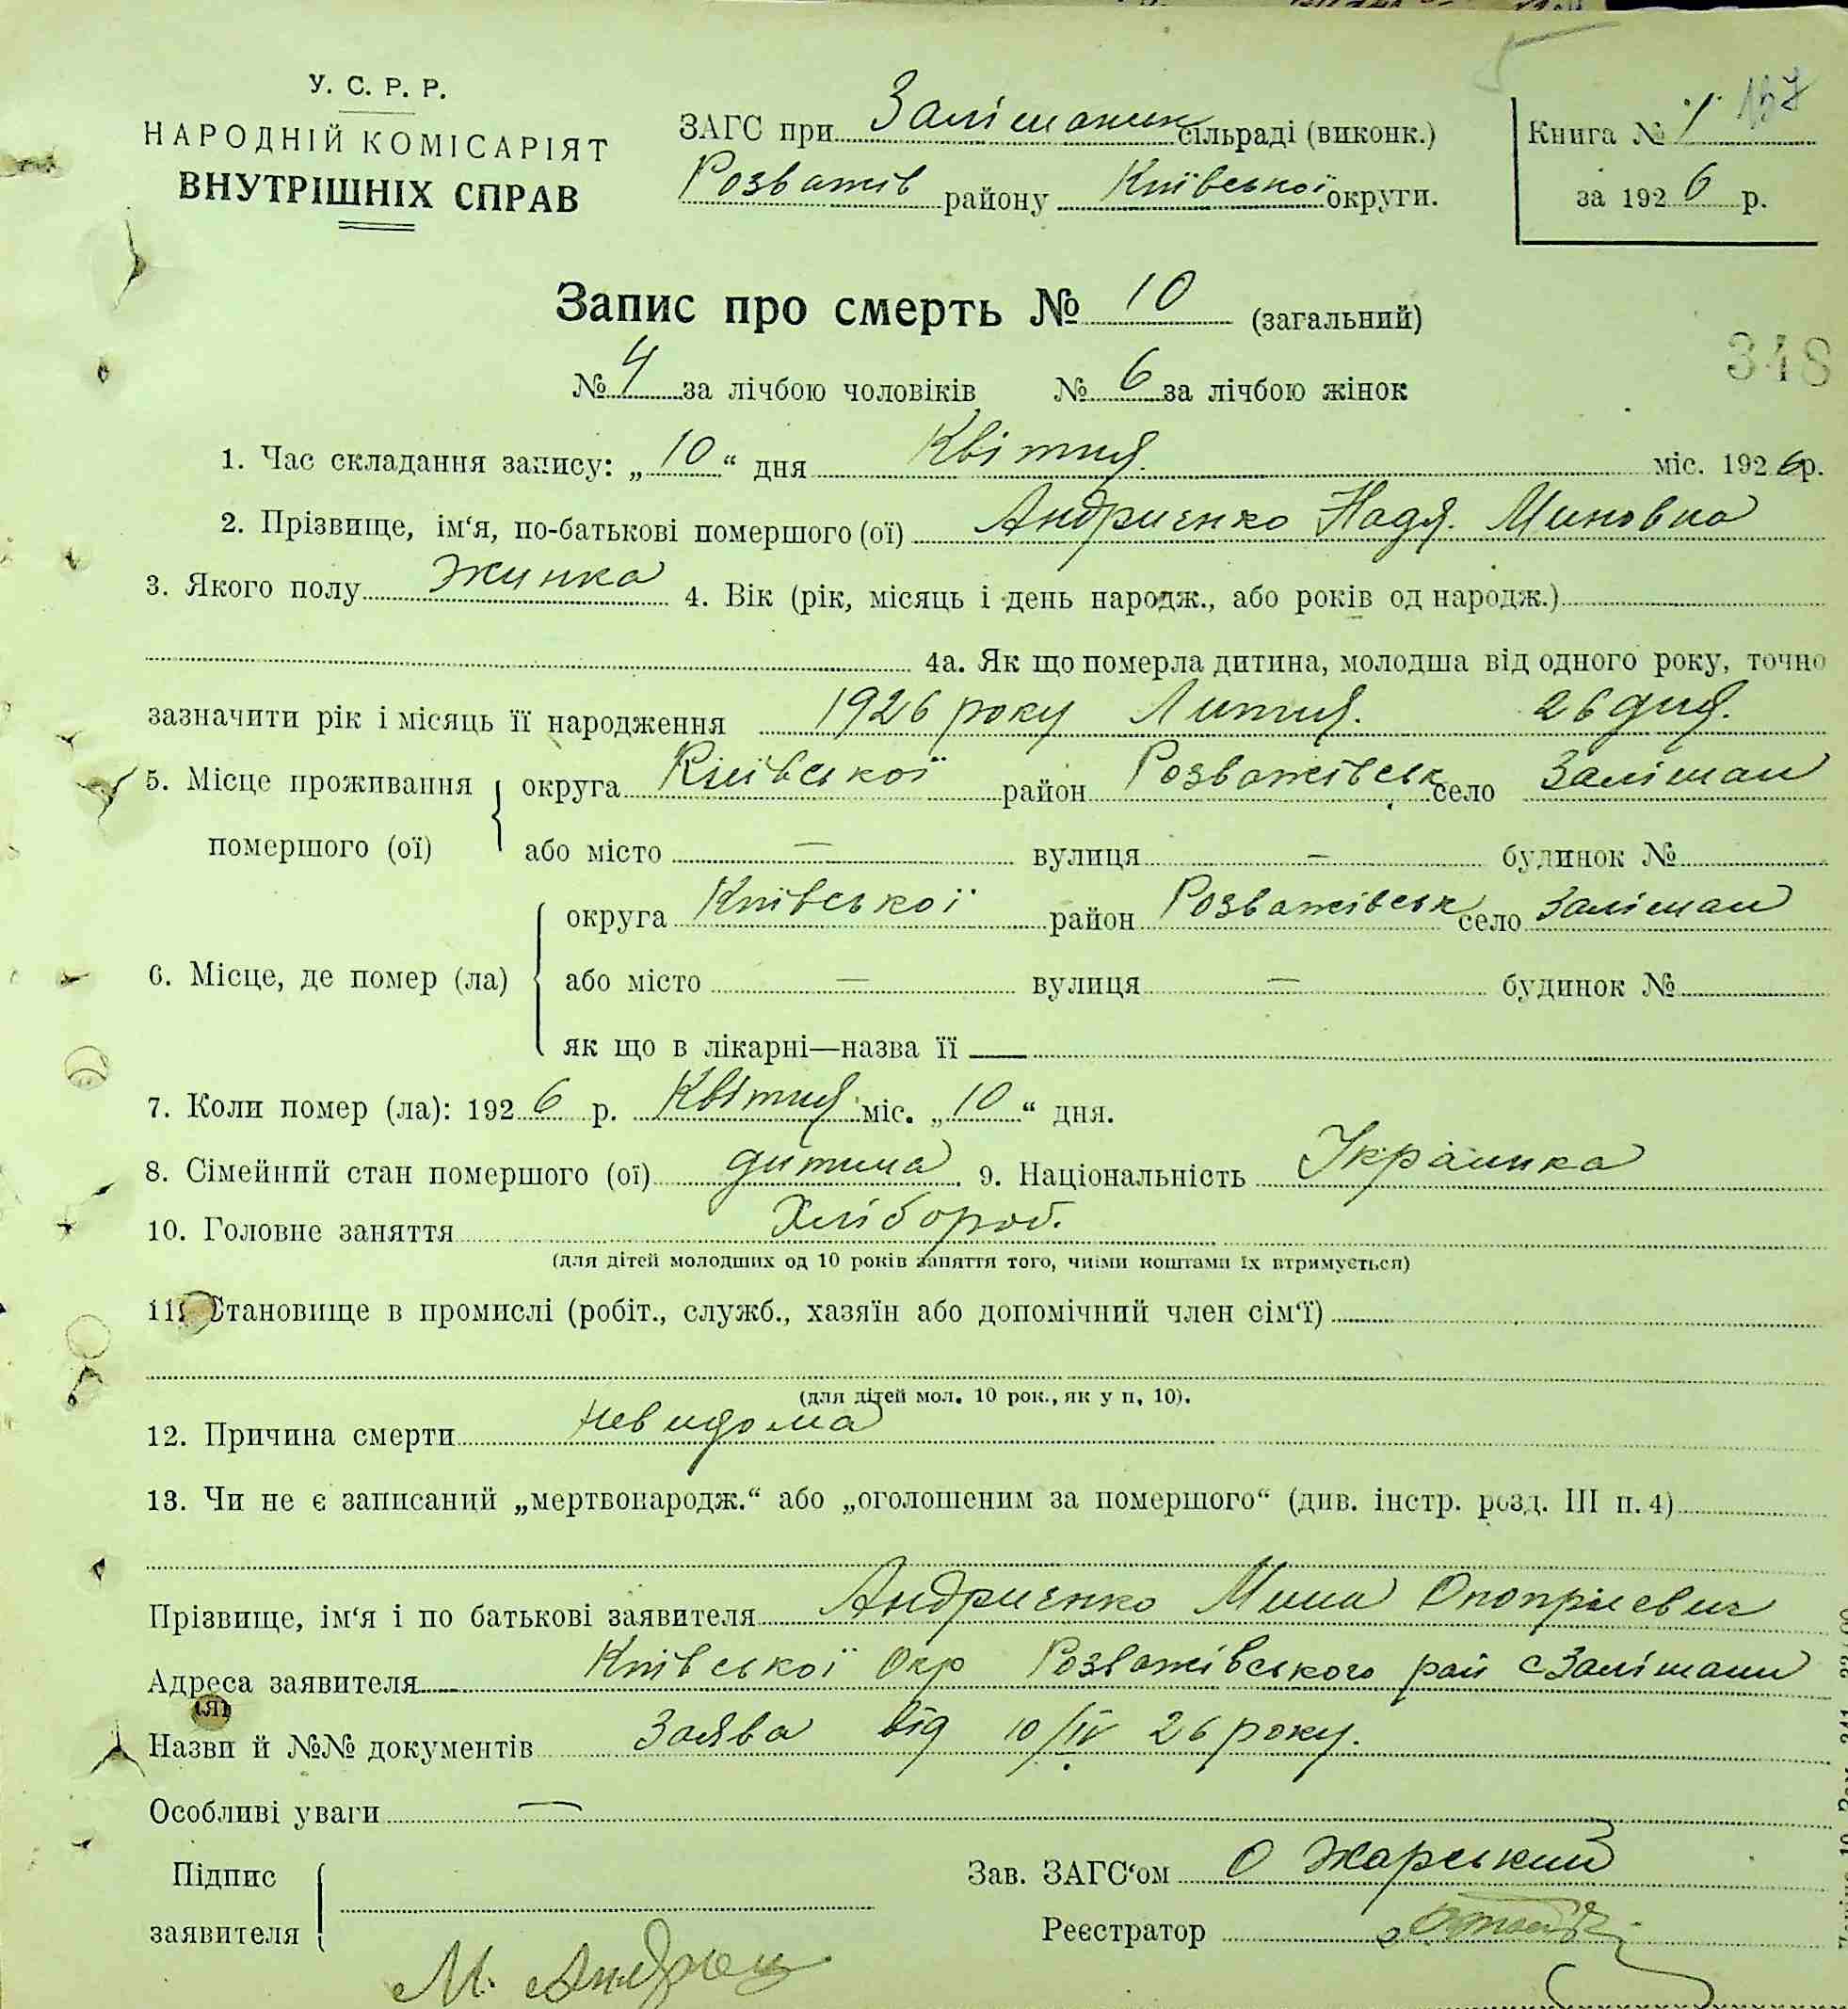 У. С. Р. Р.
НАРОДНІЙ КОМІСАРІЯТ
ВНУТРІШНІХ СПРАВ
ЗАГС при Залішаник сільраді (виконк.)
Розважів району Київської округи.
Книга № 1 157
за 1926 р.
Запис про смерть № 10 (загальний)
348
№ 4 за лічбою чоловіків № 6 за лічбою жінок
1. Час складання запису: „10“ дня Квітня міс. 1926 р.
2. Прізвище, ім‘я, по-батькові помершого (ої) Андриенко Надя. Миновна
3. Якого полу Жинка 4. Вік (рік, місяць і день народж., або років од народж.)
4а. Як що померла дитина, молодша від одного року, точно
зазначити рік і місяць її народження 1926 року Лютня. 26 дня.
5. Місце проживання округа Київської район Розважівськ село Залішан
помершого (ої) або місто — вулиця — будинок №
округа Київської район Розважівськ село Залішан
6. Місце, де помер (ла) або місто — вулиця — будинок №
як що в лікарні—назва її —
7. Коли помер (ла): 1926 р. Квітня міс. „10“ дня.
8. Сімейний стан помершого (ої) дитина 9. Національність Украинка
10. Головне заняття Хлібороб.
(для дітей молодших од 10 років заняття того, чиїми коштами їх втримується)
11. Становище в промислі (робіт., служб., хазяїн або допомічний член сім‘ї)
(для дітей мол. 10 рок., як у п, 10).
12. Причина смерти невидома
13. Чи не є записаний „мертвонародж.“ або „оголошеним за помершого“ (див. інстр. розд. III п. 4)
Прізвище, ім‘я і по батькові заявителя Андриенко Мина Оноприевич
Адреса заявителя Київської Окр Розважівського рай с Залішани
Назви й №№ документів Заява від 10/IV 26 року.
Особливі уваги —
Підпис
заявителя
М. Андриен
Зав. ЗАГС‘ом О Жарський
Реєстратор